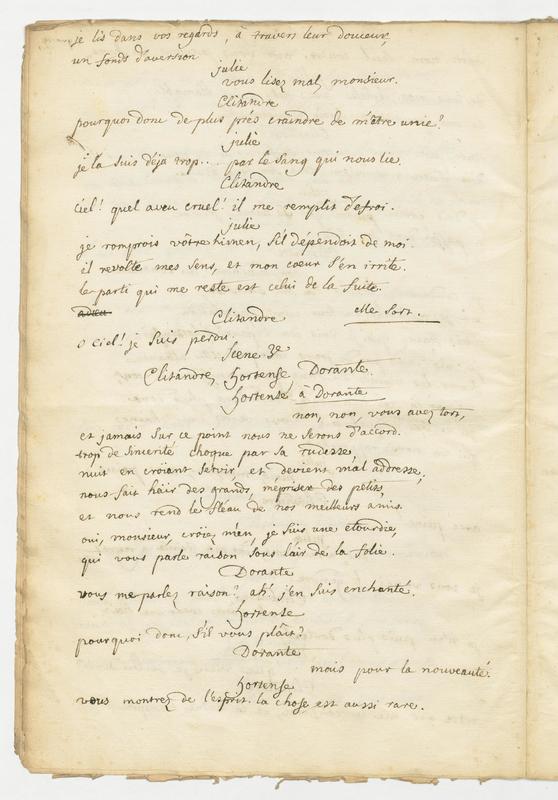 je lis dans vos regards, à travers leur douceur,
un fonds d'aversion
julie
vous lisez mal, monsieur.
Clitandre
pourquoi donc de plus près craindre de m'être unie?
julie
je la suis déja trop... par le sang qui nous lie.
Clitandre
ciel! quel aveu cruel! il me remplit d'efroi.
julie
je romprois vôtre himen, s'il dépendoit de moi.
il revolte mes sens, et mon coeur s'en irrite.
le parti qui me reste est celui de la fuite.
adieu
elle sort.
Clitandre
o ciel! je suis perdu.
Scene 3e
Clitandre, hortense, Dorante.
hortense à Dorante
non, non, vous avez tort,
et jamais sur ce point nous ne serons d'accord.
trop de sincerité choque par sa rudesse,
nuit en croïant servir, et devient mal addresse,
nous fait haïr des grands, mépriser des petits,
et nous rend le fleau de nos meilleurs amis.
oui, monsieur, croïez m'en, je suis une étourdie,
qui vous parle raison sous l'air de la folie.
Dorante
vous me parlez raison? ah! j'en suis enchanté.
hortense
pourquoi donc, s'il vous plâit?
Dorante
mais pour la nouveauté.
hortense
vous montrez de l'esprit. la chose est aussi rare.